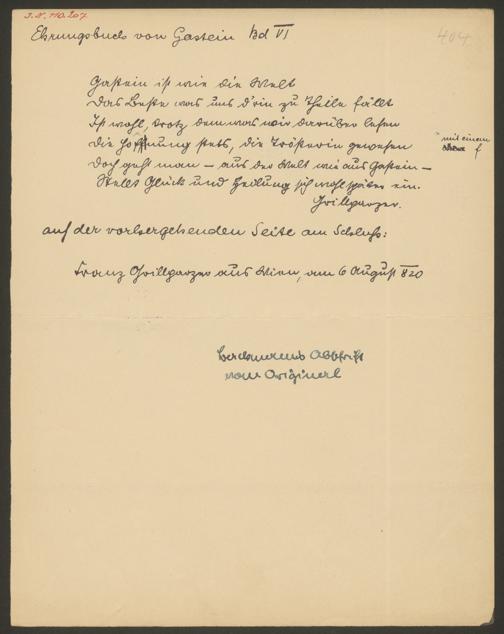 I.N. 110.207
404
Ehrungsbuch von Gastein Bd VI
Gastein ist wie die Welt
Das Beste was uns drin zu Theile fällt
Ist wohl, trotz dem was wir darüber lesen
Die Hoffnung stets, die Trösterin gewesen
mit einem
f
Doch geht man – aus der Welt wie aus Gastein –
Stellt Glück und Heilung sich wohl später ein.
Grillparzer.
auf der vorhergehenden Seite am Schluß:
Franz Grillparzer aus Wien, am 6 August 820
Abschrift
vom Original